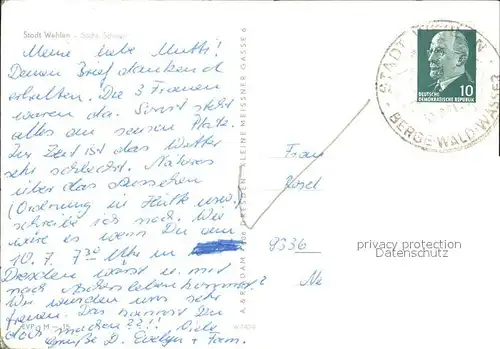 Stadt Wehlen - Sächs. Schweiz
Meine liebe Mutti!
Deinen Brief dankend
erhalten. Die 3 Frauen
waren da. Sonst steht
alles an seinem Platz.
Zur Zeit ist das Wetter
sehr schlecht. Näheres
über das Aussehen
(Ordnung in Hütte usw.)
schreibe ich noch. Wie
wäre es wenn Du am
10.7. 7³⁰ Uhr in
Dresden wärst u. mit
nach Aschersleben kommst?
Wir würden uns sehr
freuen. Das kannst Du
doch machen??!! Viele
Grüße D. Evelyn + Fam.
A & R ADAM DRESDEN KLEINE MEISSNER GASSE 6
STADT WEHLEN
BERGE-WALD-WASSER
10
DEUTSCHE
DEMOKRATISCHE REPUBLIK
Frau
Rosel
9336
privacy protection
watermark